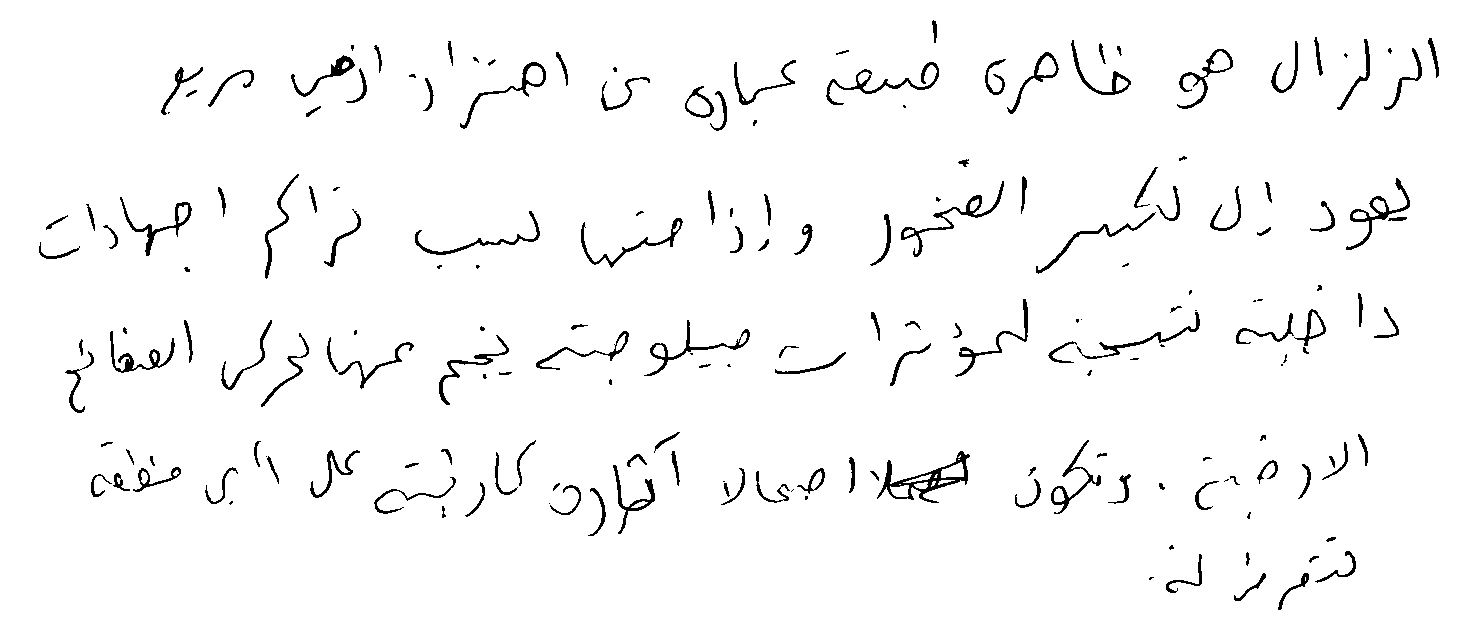 الزلزال هو ظاهرة طبيعة عباره عن اهتزاز ارضي سريع
يعود إلى تكسير الصخور وإزاحتها بسبب تراكم اجهادات
داخلية نتيجة لمؤثرات جيلوجية ينجم عنها تحرك الصفائح
الارضية. وتكون اجمالا آثاره كارثية على اي منطقة
تتعرض له.